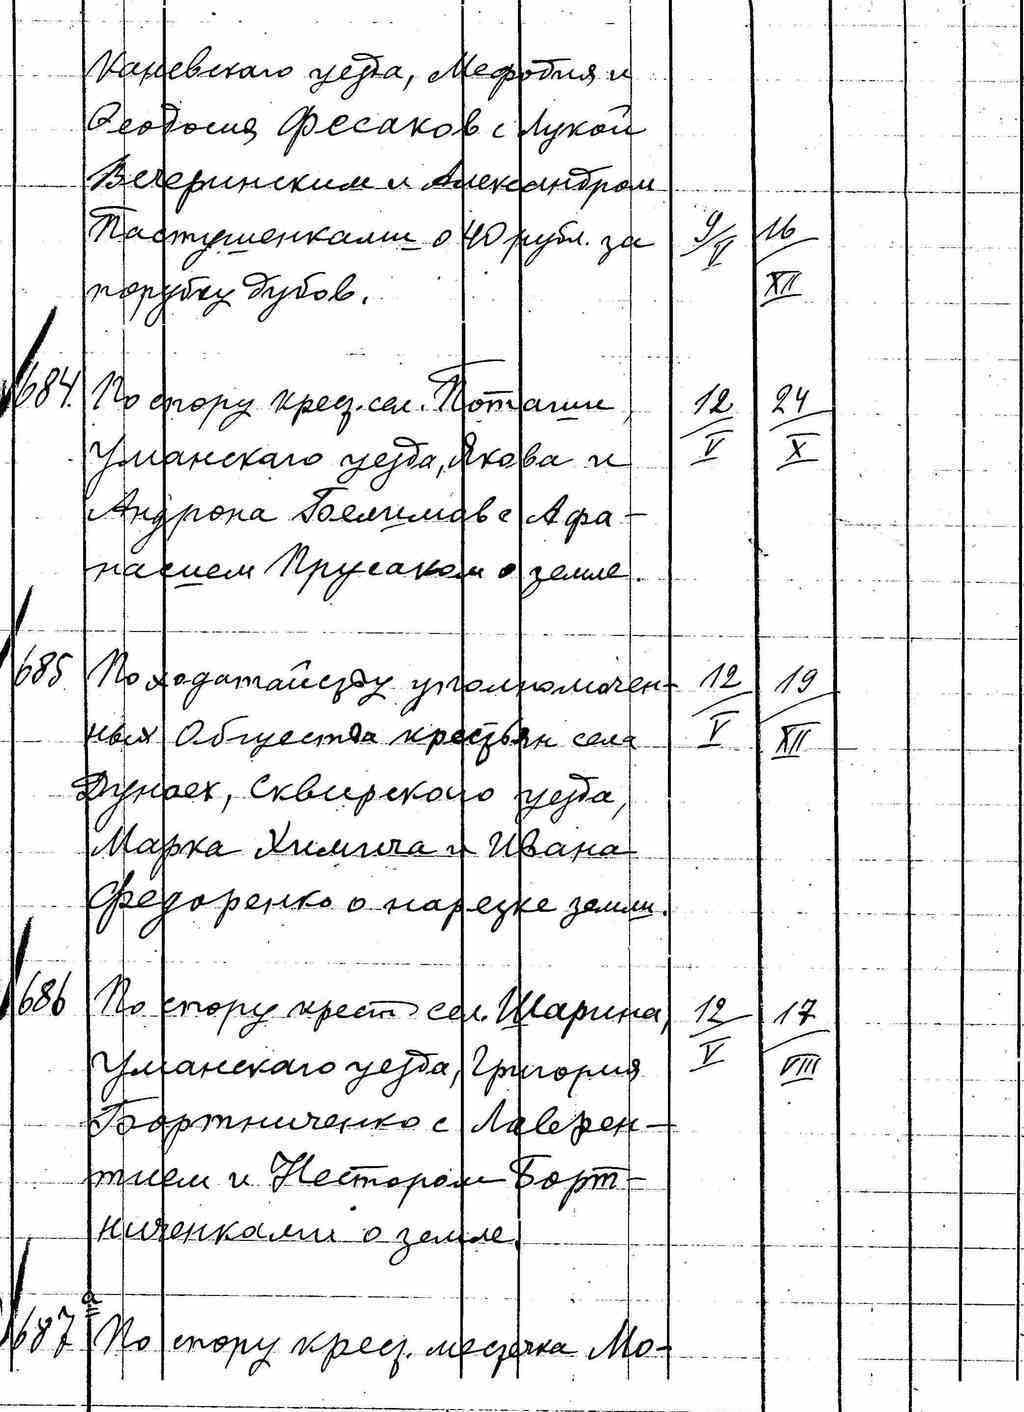 Каневскаго уезда, Мефодия и
Феодосия Фесаков с Лукой
Вечеринским и Александром
Пастушенками о 40 рубл. за 9/V 16/XII
порубку дубов.
684. По спору крест. сел. Поташи, 12/V 24/X
Уманскаго уезда, Якова и
Андрона Белимов с Афа-
насием Прусаком о земле.
685 По ходатайству уполномочен- 12/V 19/XII
ных Общества крестьян села
Дунаек, Сквирского уезда,
Марка Химича и Ивана
Федоренко о нарезке земли.
686 По спору крест. сел. Шарина, 12/V 17/VIII
Уманскаго уезда, Григория
Бортниченко с Лаврен-
тием и Нестором Борт-
ниченками о земле.
687 а По спору крест. местечка Мо-